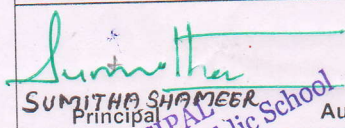 Sumitha
SUMITHA SHAMEER
Principal
PAL
lic School
Au